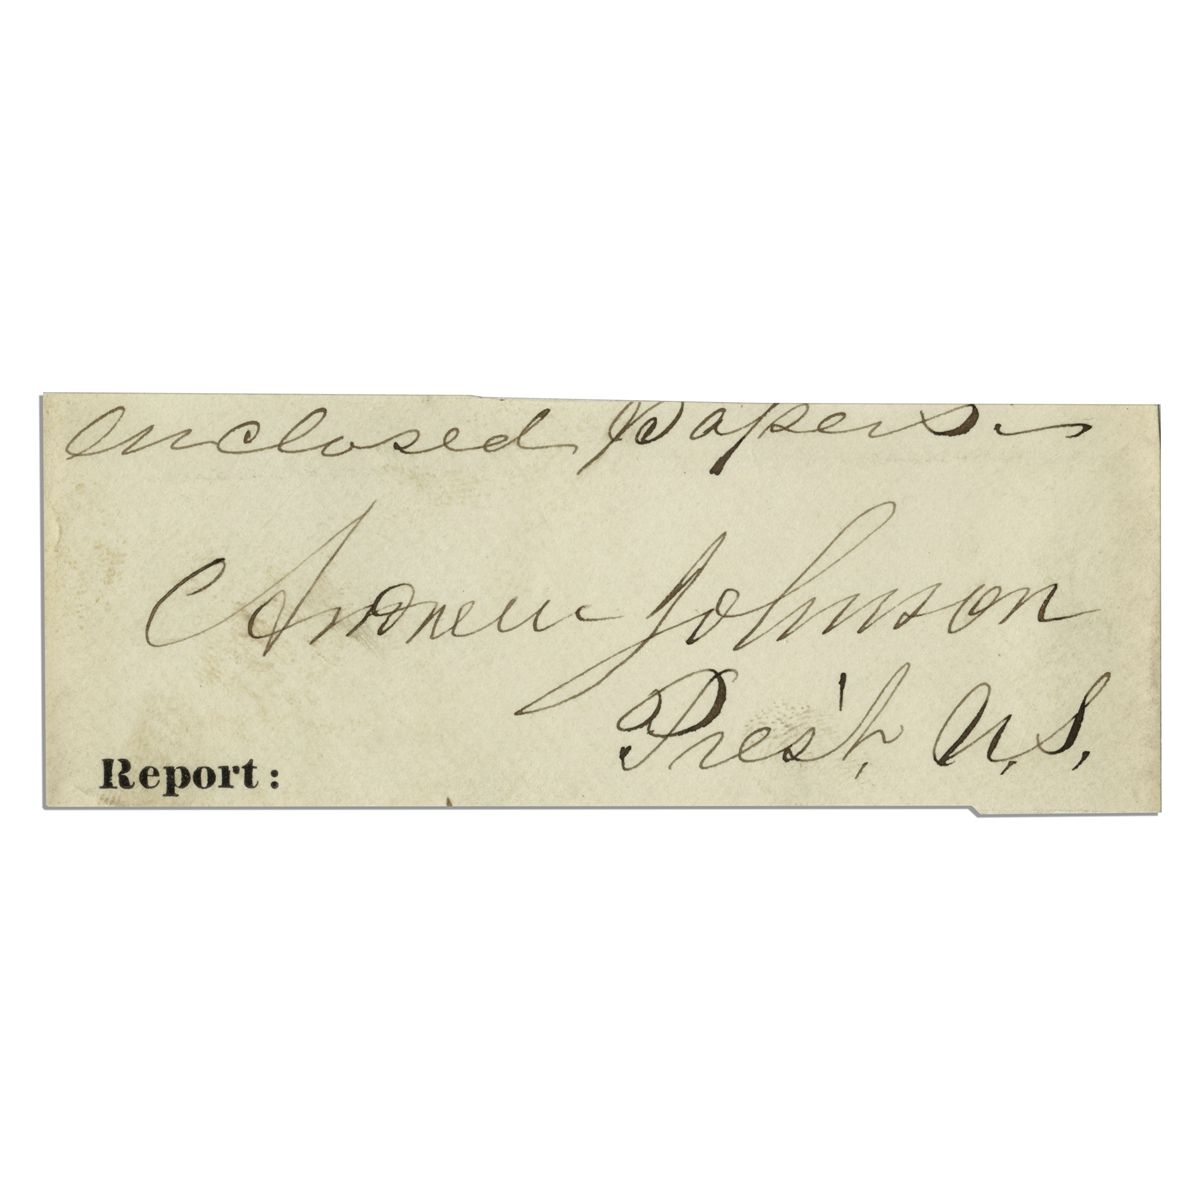 enclosed papers.
Andrew Johnson
Pres't, U.S,
Report: